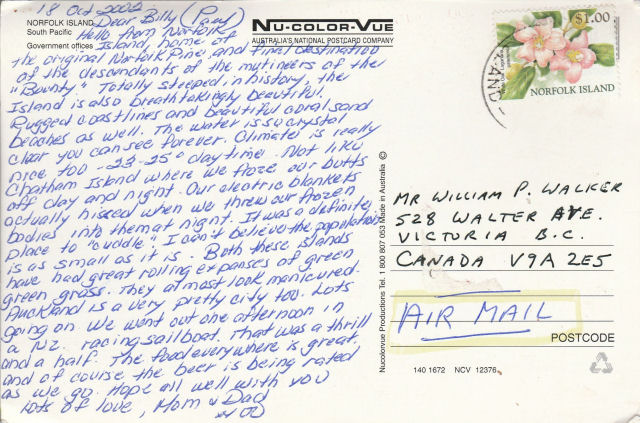 NORFOLK ISLAND
South Pacific
Government offices
NU-COLOR-VUE
AUSTRALIA'S NATIONAL POSTCARD COMPANY
18 Oct 2002
Dear Billy
Hello from Norfolk
Island, home of
the original Norfolk Pine, and final destination
of the descendants of the mutineers of the
"Bounty". Totally steeped in history, the
Island is also breathtakingly beautiful.
Rugged coastlines and beautiful coral sand
beaches as well. The water is so crystal
clear you can see forever. Climate is really
nice too - 23-25° daytime. Not like
Chatham Island where we froze our butts
off day and night. Our electric blankets
actually hissed when we threw our frozen
bodies into them at night. It was a definite
place to "cuddle". I can't believe the population
is as small as it is. Both these islands
have had great rolling expanses of green
green grass. They almost look manicured.
Auckland is a very pretty city too. Lots
going on. We went out one afternoon in
a N.Z. racing sailboat. That was a thrill
and a half. The food everywhere is great,
and of course the beer is being rated
as we go. Hope all well with you
Lots of love, Mom & Dad
$1.00
NORFOLK ISLAND
LAND
MR WILLIAM P. WALKER
528 WALTER AVE.
VICTORIA B.C.
CANADA V9A 2E5
AIR MAIL
POSTCODE
140 1672 NCV 12376
Nucolorvue Productions Tel. 1 800 807 053 Made in Australia ©